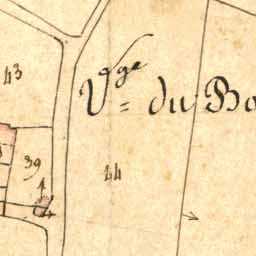 43
V^ge = du Bo
39
44